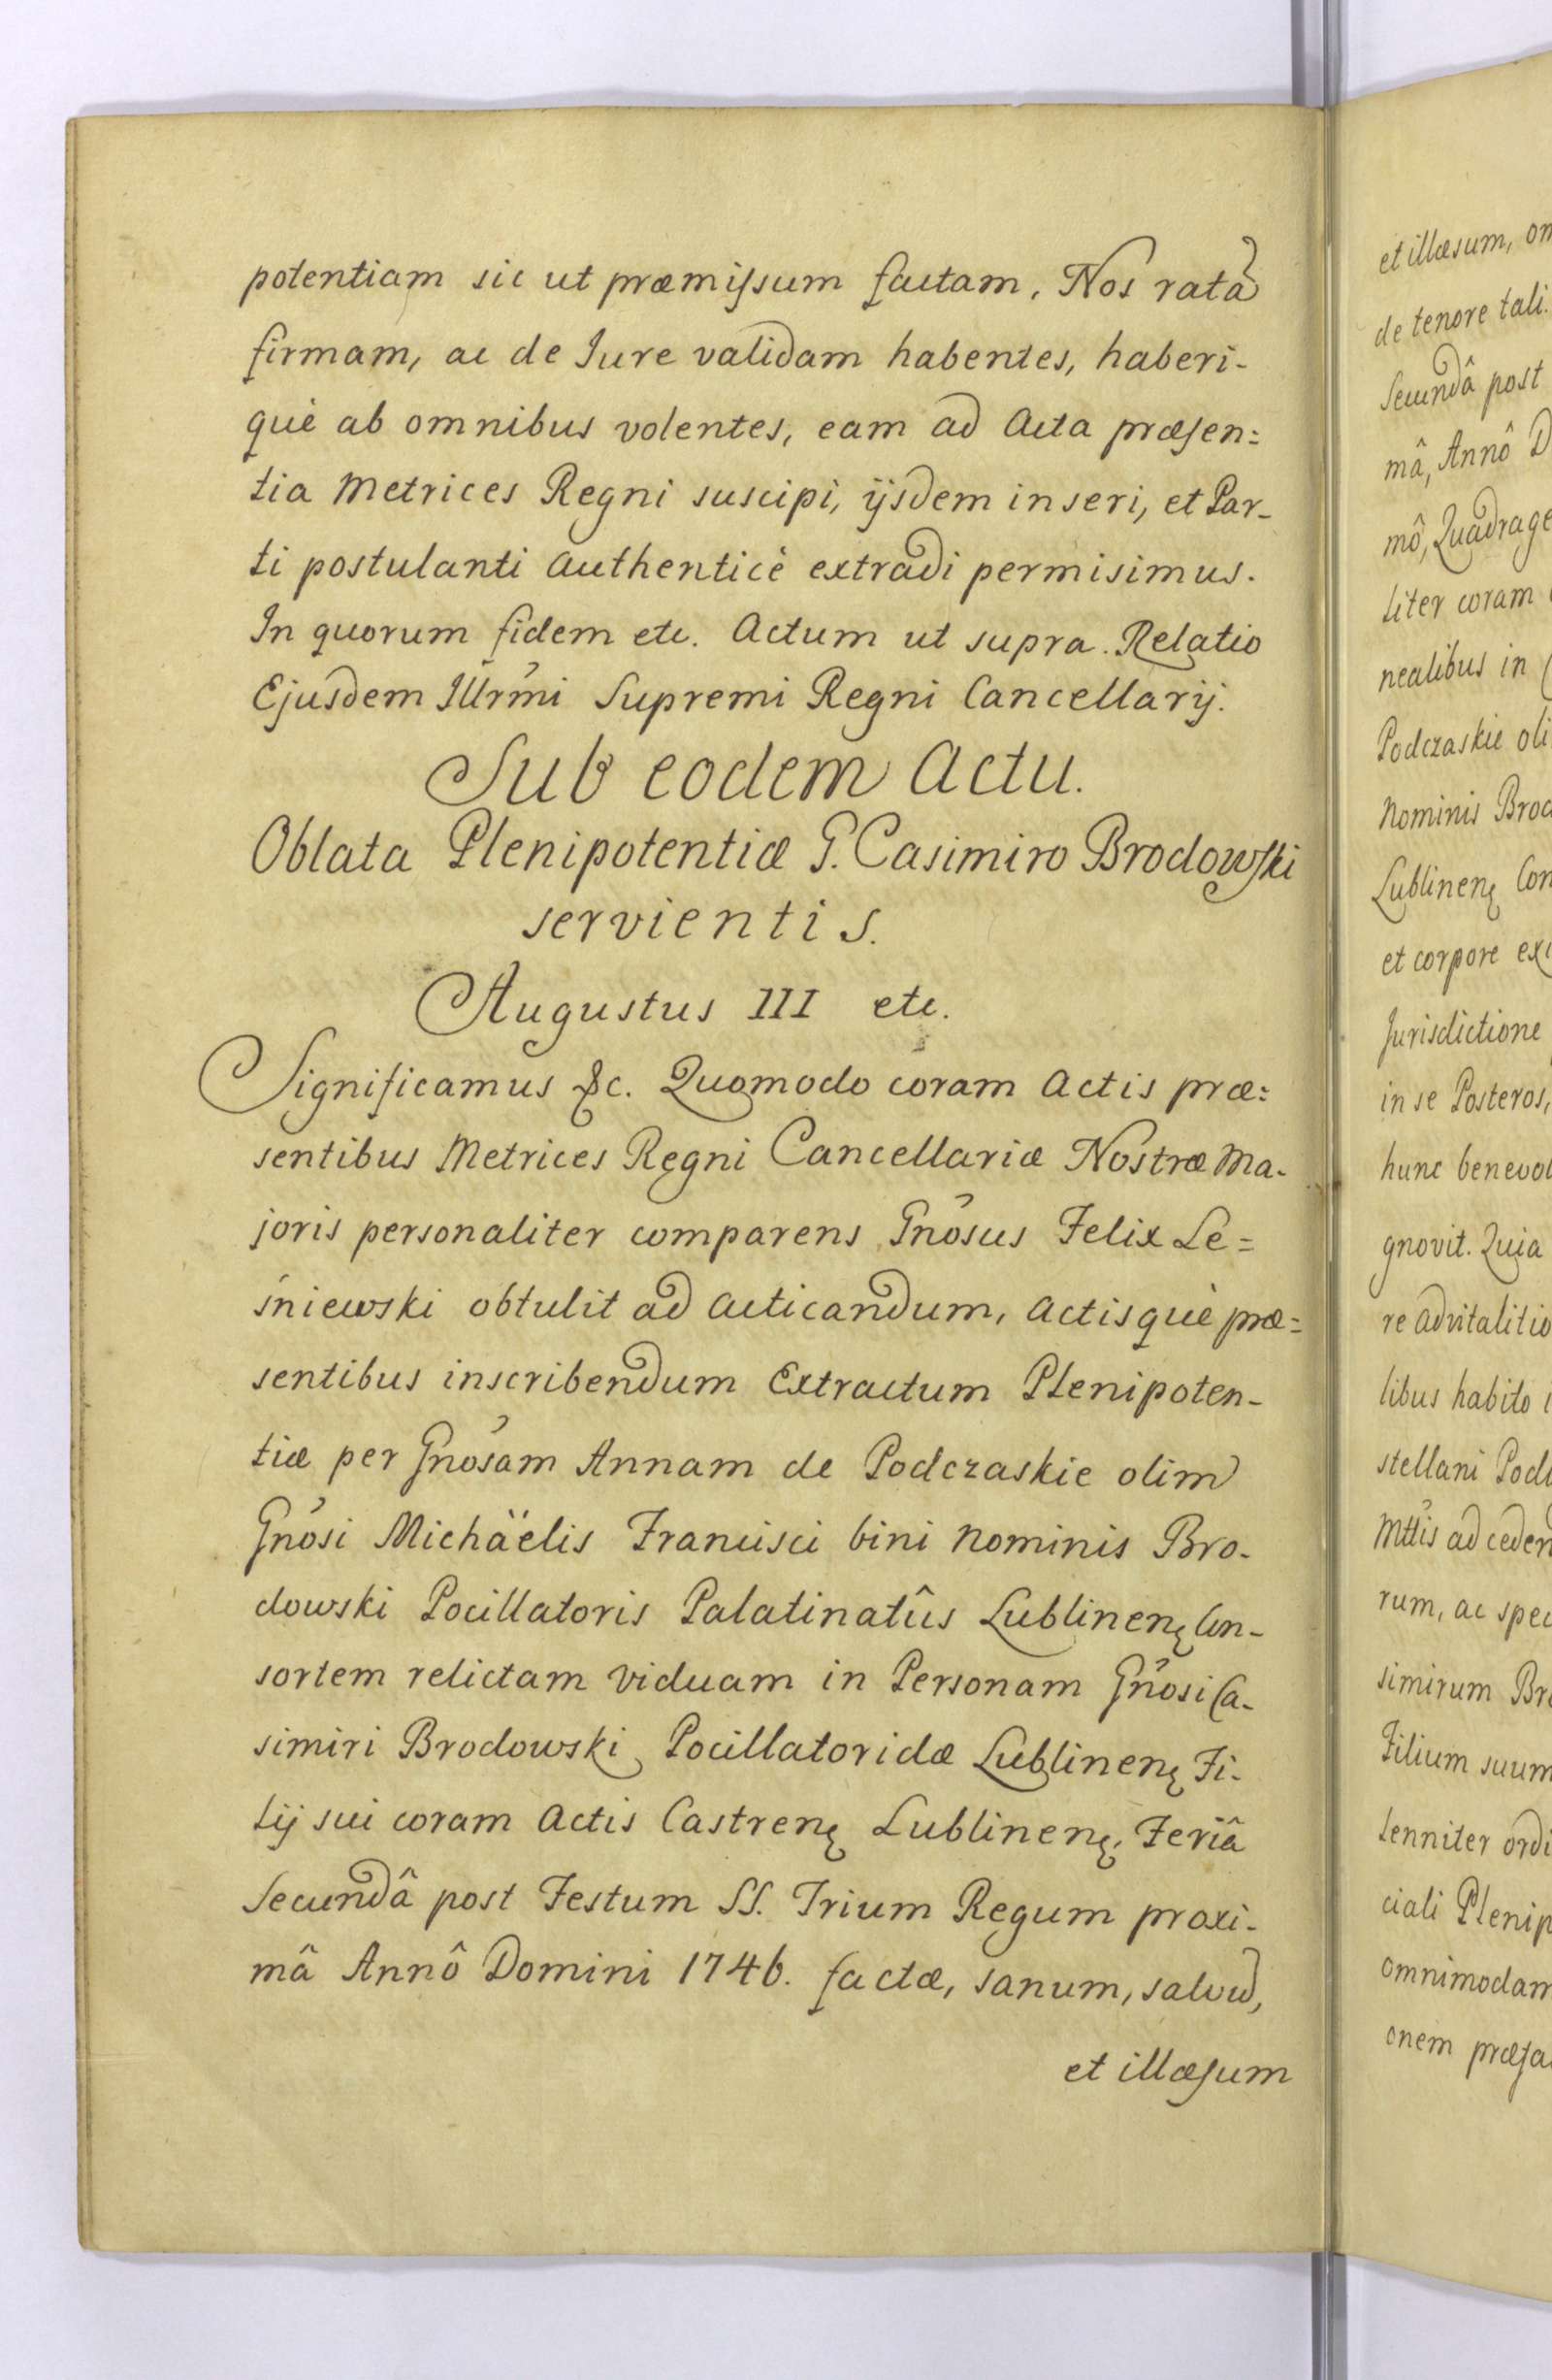 potentiam sic ut præmissum factam, Nos ratã
firmam, ac de Iure validam habentes, haberi-
què ab omnibus volentes, eam ad Acta præsen=
tia Metrices Regni suscipi, ijsdem inseri, et Par-
ti postulanti authenticè extradi permisimus.
In quorum fidem etc. Actum ut supra. Relatio
Ejusdem Illrmi Supremi Regni Cancellarij.
Sub eodem Actu.
Oblata Plenipotentiæ G. Casimiro Brodowski
servientis.
Augustus III etc.
Significamus &c. Quomodo coram Actis præ=
sentibus Metrices Regni Cancellariæ Nostræ Ma-
joris personaliter comparens Gnosus Felix Le=
śniewski obtulit ad acticandum, actisquè præ=
sentibus inscribendum Extractum Plenipoten-
tiæ per Gnosam Annam de Podczaskie olim
Gnosi Michäelis Francisci bini Nominis Bro-
dowski Pocillatoris Palatinatûs Lublinenę Con-
sortem relictam Viduam in Personam Gnosi Ca-
simiri Brodowski Pocillatoridæ Lublinenę Fi-
lij sui coram Actis Castrenę Lublinenę, Feriâ
Secundâ post Festum SS. Trium Regum proxi-
mâ Annô Domini 1746. factæ, sanum, salvũ,
et illæsum
et illæsum, om
de tenore tali.
Secundâ post
mâ, Annô D
mô, Quadrage
liter coram
nealibus in
Podczaskie oli
Nominis Brod
Lublinenę Con
et corpore exi
Jurisdictione
in se Posteros,
hunc benevol
gnovit. Quia
re advitalitio
libus habito i
stellani Podl
Mttis ad ceden
rum, ac spec
simirum Bro
Filium suum
lenniter ordi
ciali Plenip
omnimodam
onem præsa